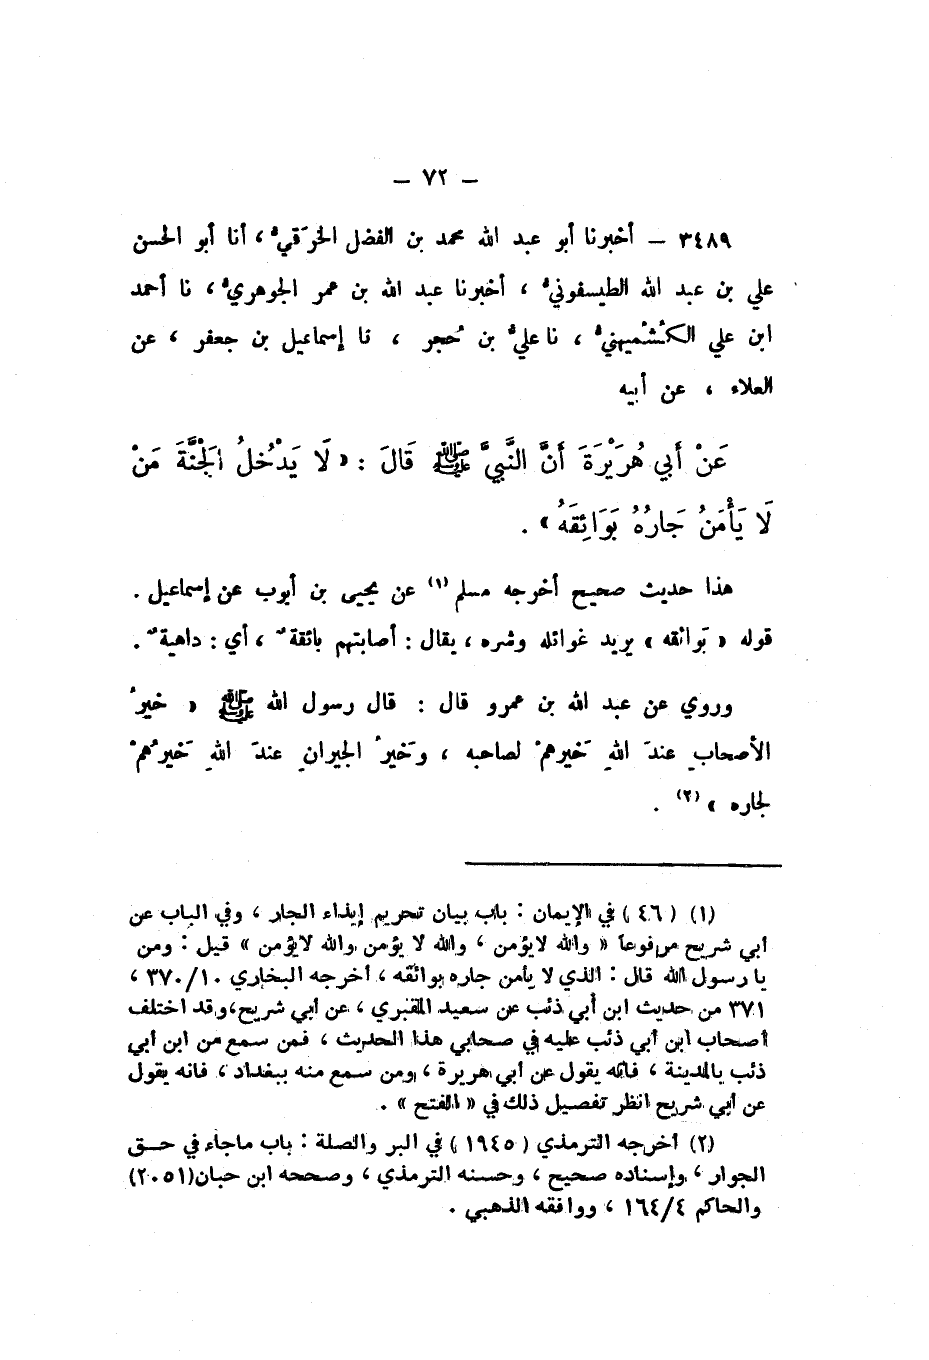 – ٧٢ –
٣٤٨٩ – أخبرنا أبو عبد الله محمد بن الفضل الخَرَقيُّ ، أنا أبو الحسن
علي بن عبد الله الطيسفونيُّ ، أخبرنا عبد الله بن عمر الجوهريُّ ، نا أحمد
ابن علي الكُشْمِيهنيُّ ، نا عليُّ بن حُجر ، نا إسماعيل بن جعفر ، عن
العلاء ، عن أبيه
عَنْ أَبي هُرَيْرَةَ أَنَّ النَّبيَّ ﷺ قَالَ : « لَا يَدْخُلُ الْجَنَّةَ مَنْ
لَا يَأْمَنُ جَارُهُ بَوَائِقَهُ » .
هذا حديث صحيح أخرجه مسلم (١) عن يحيى بن أيوب عن إسماعيل .
قوله « بَوائقه » يريد غوائله وشره ، يقال : أصابتهم بائقةٌ ، أي : داهيةٌ .
وروي عن عبد الله بن عمرو قال : قال رسول الله ﷺ « خيرُ
الأصحابِ عندَ اللهِ خَيرهمْ لصاحبه ، وخَيرُ الجيرانِ عندَ اللهِ خَيرُهمْ
لجاره » (٢) .
(١) (٤٦) في الإيمان : باب بيان تحريم إيذاء الجار ، وفي الباب عن
أبي شريح مرفوعاً « والله لايؤمن ، والله لا يؤمن والله لايؤمن » قيل : ومن
يا رسول الله قال : الذي لا يأمن جاره بوائقه ، أخرجه البخاري ٣٧٠/١٠ ،
٣٧١ من حديث ابن أبي ذئب عن سعيد المقبري ، عن أبي شريح، وقد اختلف
أصحاب ابن أبي ذئب عليه في صحابي هذا الحديث ، فمن سمع من ابن أبي
ذئب بالمدينة ، فانه يقول عن أبي هريرة ، ومن سمع منه ببغداد ، فانه يقول
عن أبي شريح انظر تفصيل ذلك في « الفتح » .
(٢) أخرجه الترمذي (١٩٤٥) في البر والصلة : باب ماجاء في حـق
الجوار ، وإسناده صحيح ، وحسنه الترمذي ، وصححه ابن حبان(٢٠٥١)
والحاكم ١٦٤/٤ ، ووافقه الذهبي .